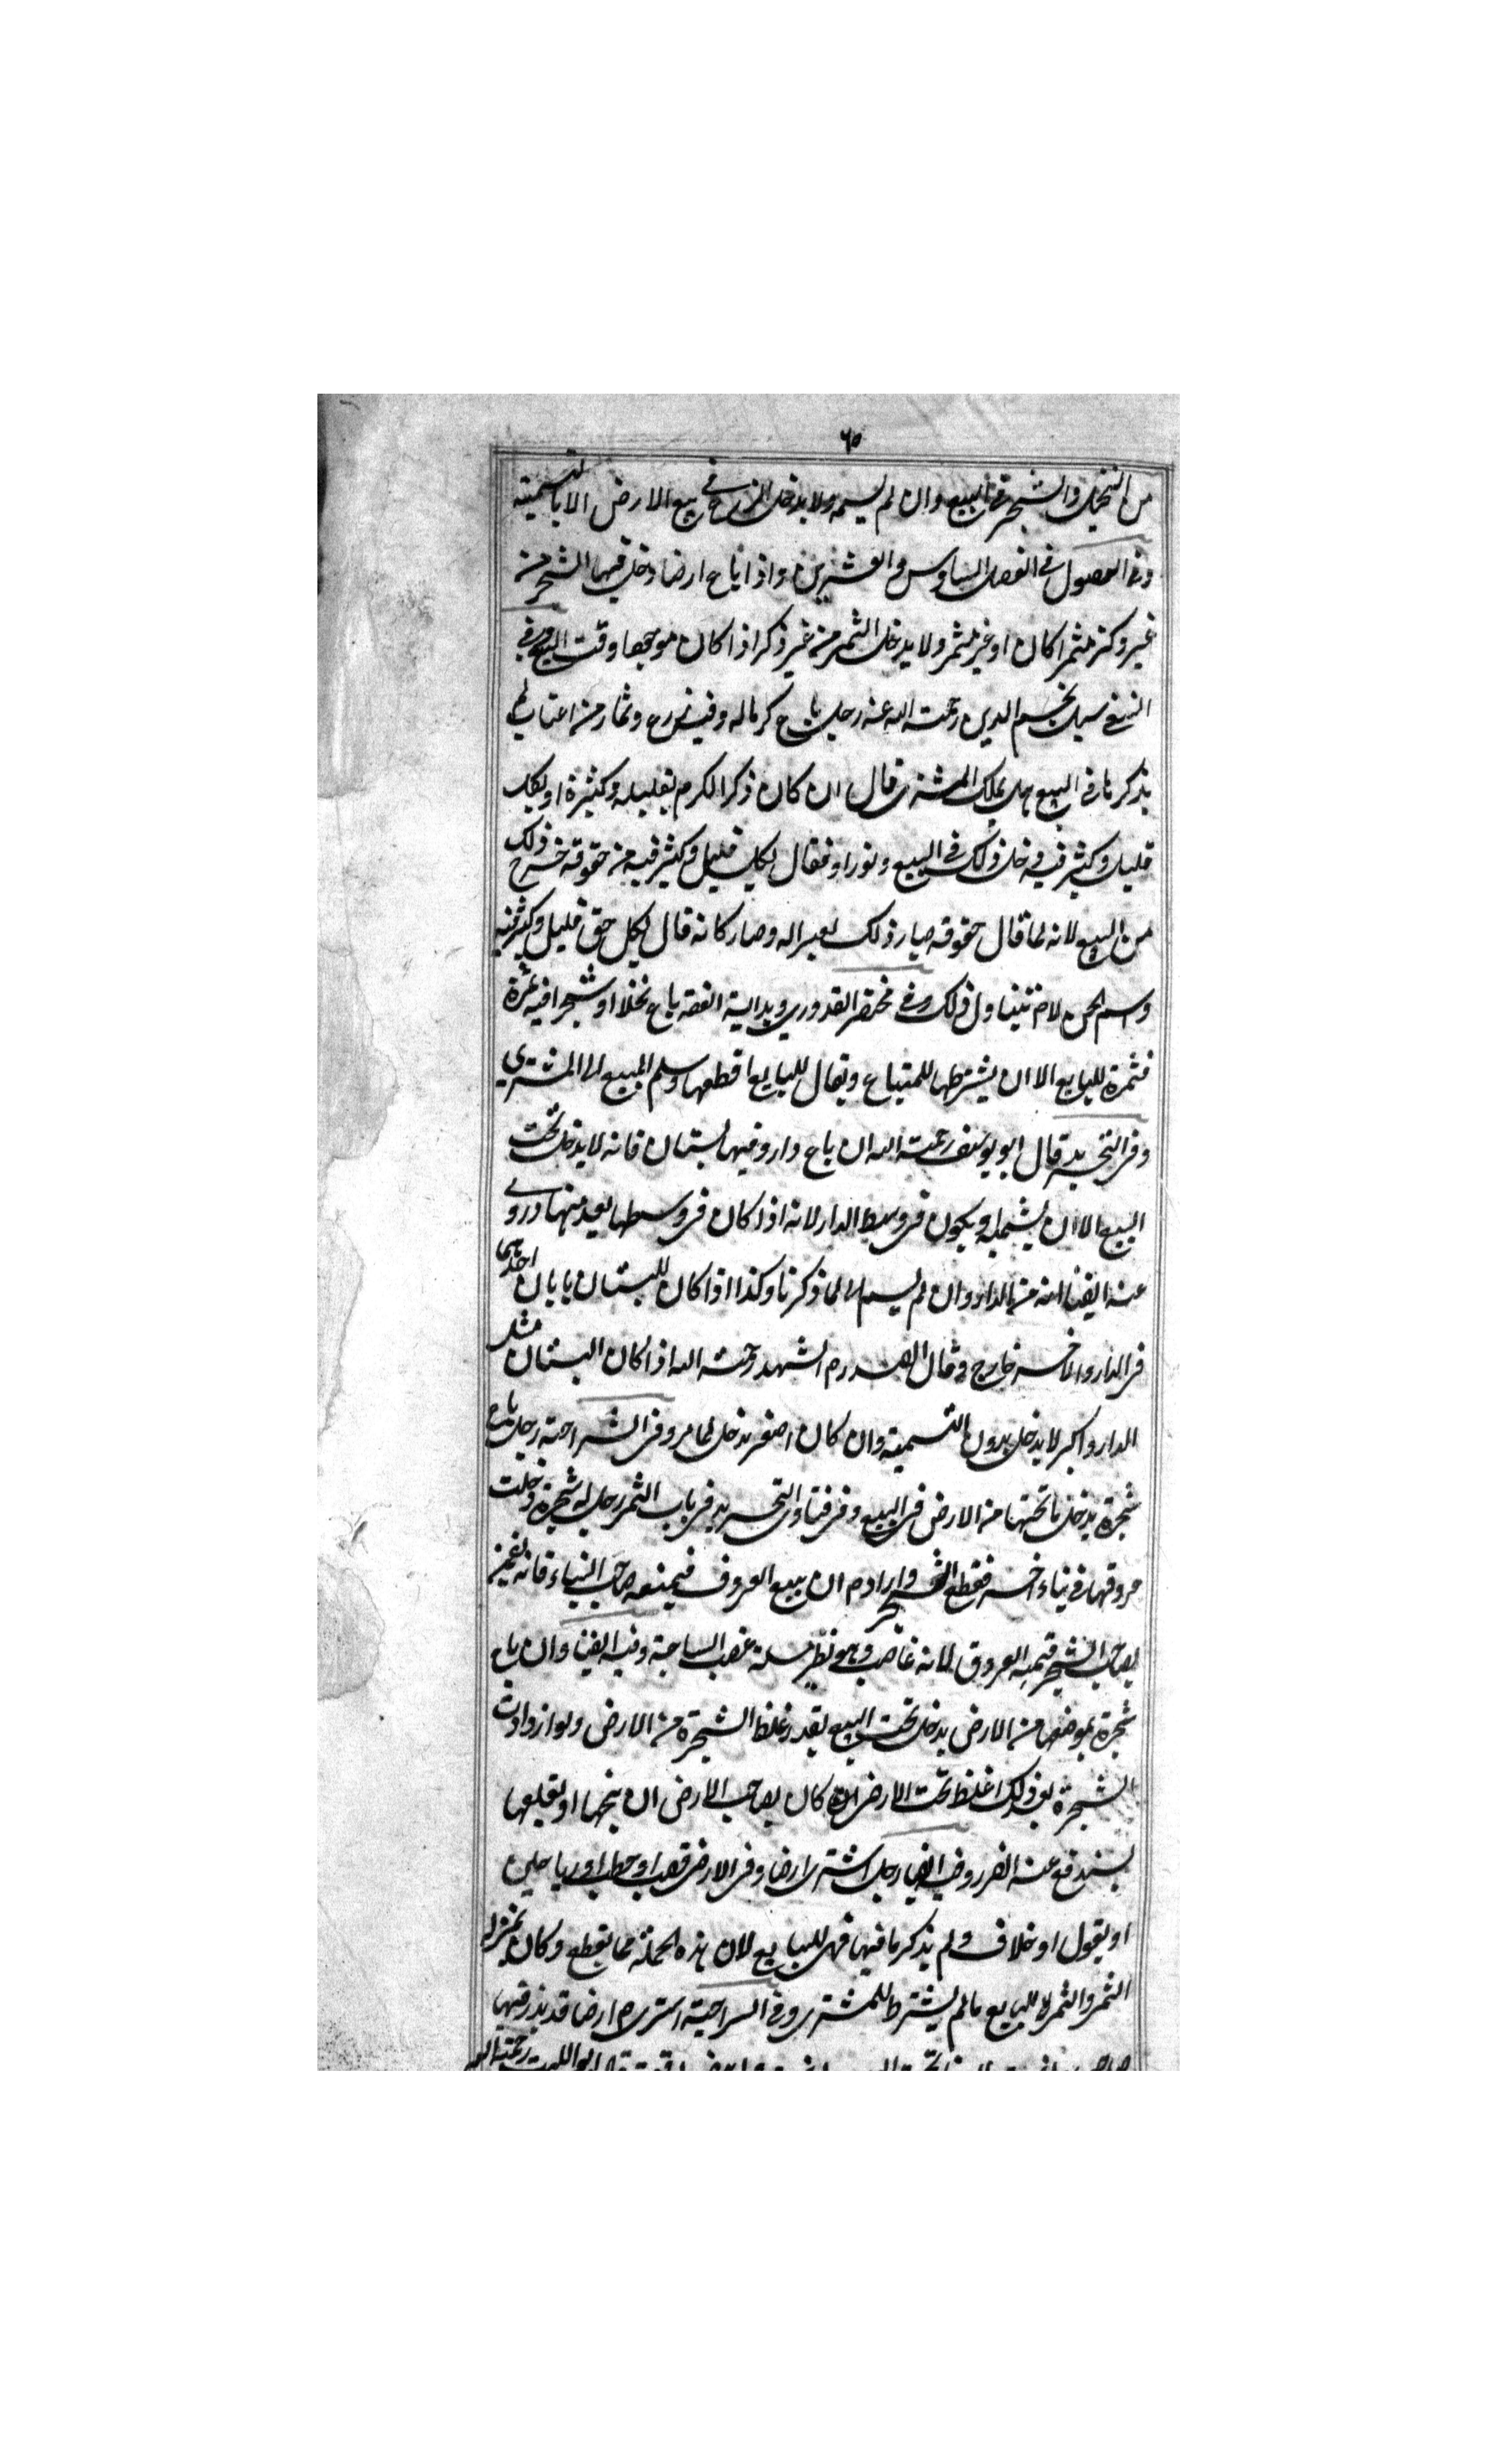 ٦٥
من النخيل والشجر في البيع وان لم يسمه ولا يدخل الزرع في بيع الارض الا بالتسمية
وفي الفصول في الفصل السادس والعشرين واذا باع ارضا دخل فيها الشجر من
غير ذكر مثمرا كان او غير مثمر ولا يدخل الثمر من غير ذكر اذا كان موجودا وقت البيع وفي
النسفي سئل نجم الدين رحمة الله عنه رجل باع كرما له وفيه زرع وثمار من اعناب لم
يذكرها في البيع هل يملك المشتري قال ان كان ذكر الكرم بقليله وكثيره او بكل
قليل وكثير فيه دخل ذلك في البيع ولو زاد فقال بكل قليل وكثير فيه من حقوقه خرج ذلك
من البيع لانه لما قال حقوقه صار ذلك وصار كانه قال بكل حق قليل وكثير فيه
واسم الحق لا يتناول ذلك وفي مختصر القدوري وبداية الفقه باع نخلا او شجرا فيه ثمرة
فثمرة للبايع الا ان يشترطها للمبتاع ويقال للبايع اقطعها وسلم المبيع الى المشتري
وفي التجريد قال ابو يوسف رحمة الله ان باع دار وفيها بستان فانه لا يدخل تحت
البيع الا ان يسميه او يكون في وسط الدار لانه اذا كان في وسطها يعد منها وروي
عنه ايضا انه من الدار وان لم يسم لما ذكرنا وكذا اذا كان للبستان بابان احدهما
في الدار والاخر خارج وقال الصدر الشهيد رحمة الله اذا كان البستان مثل
الدار واكبر لا يدخل بدون التسمية وان كان اصغر يدخل لما مر وفي السراجية رجل باع
شجرة يدخل ما تحتها من الارض في البيع وفي فتاوى التجريد في باب الثمر رجل له شجرة دخلت
عروقها في بناء اخر فقطع الشجر واراد ان يبيع العروق فيمنعه صاحب البناء فانه يغرم
لصاحب الشجر قيمة العروق لانه غاصب وهو نظير مسئلة غصب الساجة وفيه ايضا وان باع
شجرة بموضعها من الارض يدخل تحت البيع بقدر غلظ الشجرة من الارض ولو ازدادت
الشجرة بعد ذلك غلظ تحت الارض كان لصاحب الارض ان ينحتها او يقلعها
ليندفع عنه الضرر وفيه ايضا رجل اشترى ارضا وفي الارض قصب او حطب او رياحين
او بقول او خلاف ولم يذكر ما فيها فهي للبايع لان هذه الجملة مما يقطع وكان بمنزلة
الثمر والثمر للبايع ما لم يشترط للمشتري وفي السراجية اشترى ارضا قد بذر فيها